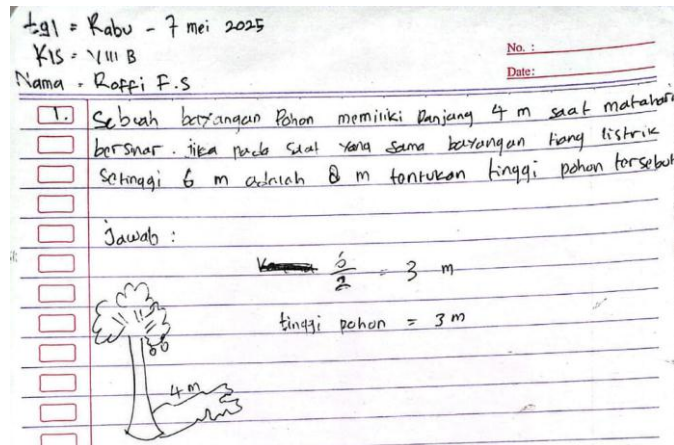 tgl = Rabu - 7 mei 2025
Kls = VIII B
No. :
Nama = Roffi F.S
Date:
1. Sebuah bayangan Pohon memiliki Panjang 4 m saat matahari
bersnar. jika pada saat yang sama bayangan tiang listrik
setinggi 6 m adalah 8 m tentukan tinggi pohon tersebut
Jawab :
6/2 = 3 m
tinggi pohon = 3 m
4 m